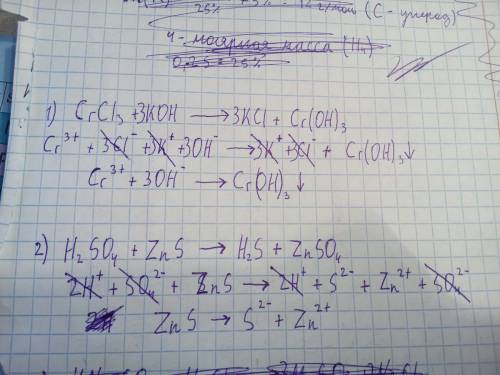 25%
г/моль (С - углерод)
4 - молярная масса (H₂)
0,25 = 25%
1) CrCl₃ + 3KOH → 3KCl + Cr(OH)₃
Cr³⁺ + 3Cl⁻ + 3K⁺ + 3OH⁻ → 3K⁺ + 3Cl⁻ + Cr(OH)₃↓
Cr³⁺ + 3OH⁻ → Cr(OH)₃↓
2) H₂SO₄ + ZnS → H₂S + ZnSO₄
2H⁺ + SO₄²⁻ + ZnS → 2H⁺ + S²⁻ + Zn²⁺ + SO₄²⁻
ZnS → S²⁻ + Zn²⁺